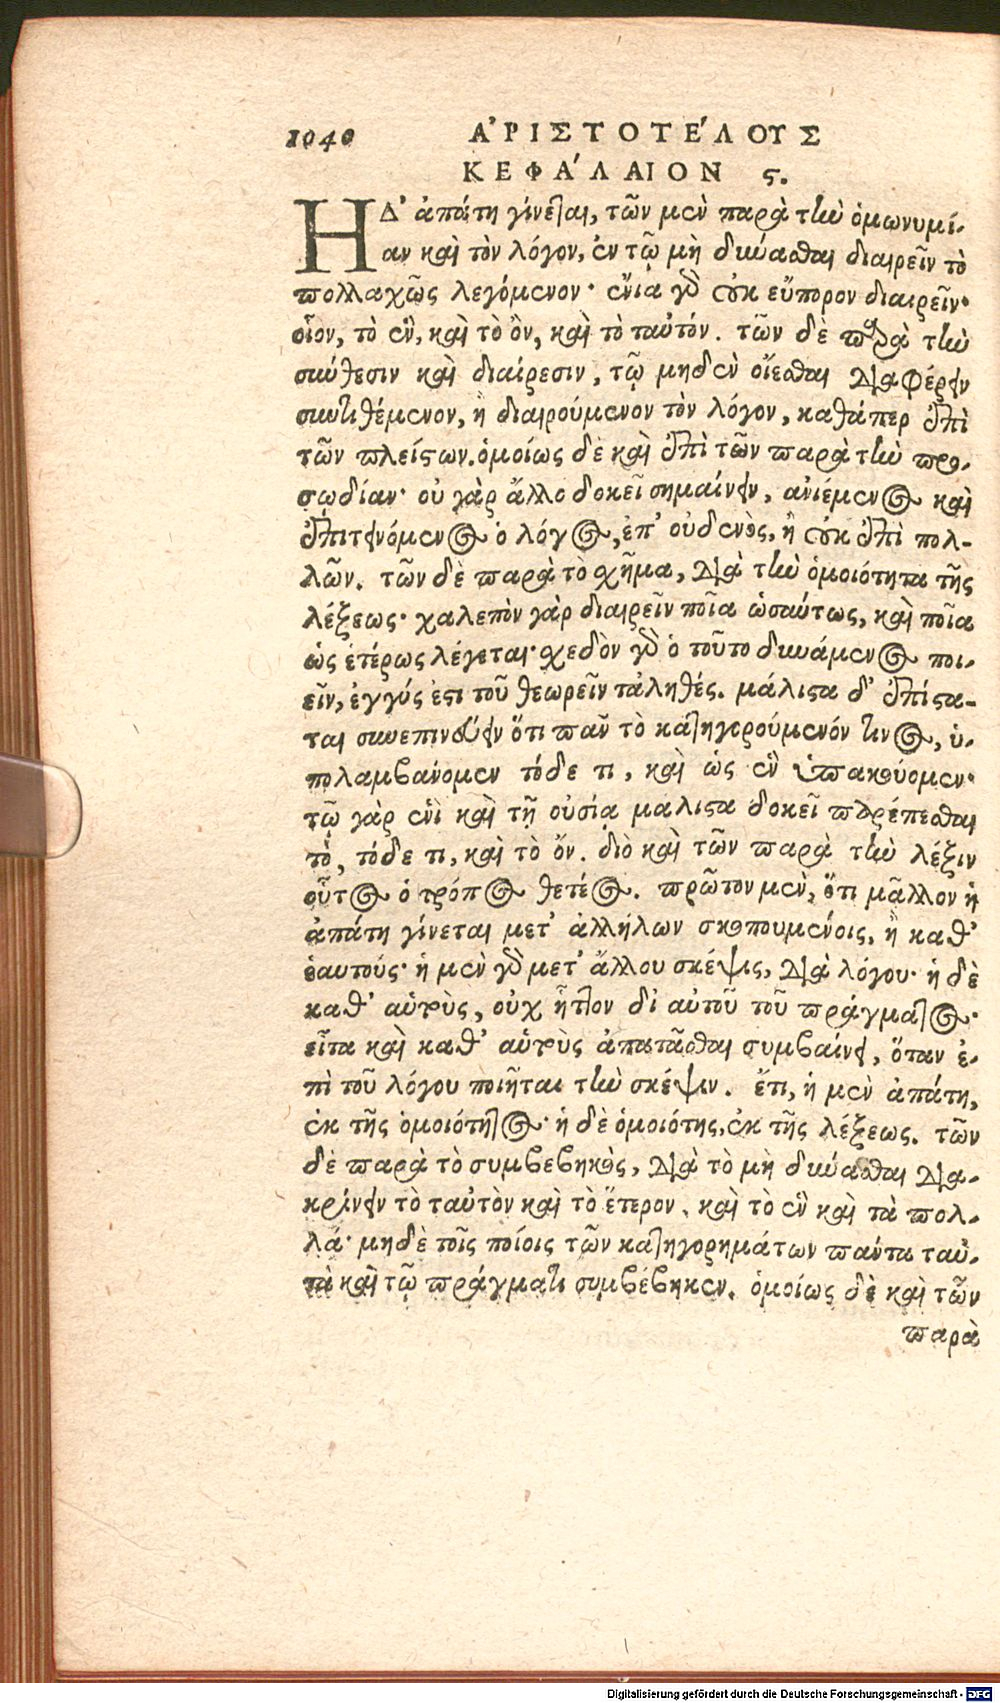 1040 ἈΡΙΣΤΟΤΈΛΟΥΣ
ΚΕΦΆΛΑΙΟΝ ϛ.
Η Δ᾽ ἀπάτη γίνεται, τῶν μὲν παρὰ τὴν ὁμωνυμί-
αν καὶ τὸν λόγον, ἐν τῷ μὴ δύνασθαι διαιρεῖν τὸ
πολλαχῶς λεγόμενον· ἔνια γὰρ οὐκ εὔπορον διαιρεῖν·
οἷον, τὸ ἓν, καὶ τὸ ὂν, καὶ τὸ ταὐτόν. τῶν δὲ παρὰ τὴν
σύνθεσιν καὶ διαίρεσιν, τῷ μηδὲν οἴεσθαι διαφέρειν
συντιθέμενον, ἢ διαιρούμενον τὸν λόγον, καθάπερ ἐπὶ
τῶν πλείστων. ὁμοίως δὲ καὶ ἐπὶ τῶν παρὰ τὴν προ-
σῳδίαν· οὐ γὰρ ἄλλο δοκεῖ σημαίνειν, ἀνιέμενος καὶ
ἐπιτεινόμενος ὁ λόγος, ἐπ᾽ οὐδενὸς, ἢ οὐκ ἐπὶ πολ-
λῶν. τῶν δὲ παρὰ τὸ σχῆμα, διὰ τὴν ὁμοιότητα τῆς
λέξεως· χαλεπὸν γὰρ διαιρεῖν ποῖα ὡσαύτως, καὶ ποῖα
ὡς ἑτέρως λέγεται· σχεδὸν γὰρ ὁ τοῦτο δυνάμενος ποι-
εῖν, ἐγγύς ἐστι τοῦ θεωρεῖν τἀληθές. μάλιστα δ᾽ ἐπίστα-
ται συνεπινεύειν ὅτι πᾶν τὸ κατηγορούμενόν τινος, ὑ-
πολαμβάνομεν τόδε τι, καὶ ὡς ἓν ὑπακούομεν·
τῷ γὰρ ἑνὶ καὶ τῇ οὐσίᾳ μάλιστα δοκεῖ παρέπεσθαι
τὸ, τόδε τι, καὶ τὸ ὄν. διὸ καὶ τῶν παρὰ τὴν λέξιν
οὗτος ὁ τρόπος θετέος. πρῶτον μὲν, ὅτι μᾶλλον ἡ
ἀπάτη γίνεται μετ᾽ ἀλλήλων σκοπουμένοις, ἢ καθ᾽
ἑαυτούς· ἡ μὲν γὰρ μετ᾽ ἄλλου σκέψις, διὰ λόγου· ἡ δὲ
καθ᾽ αὑτοὺς, οὐχ ἧττον δι᾽ αὐτοῦ τοῦ πράγματος·
εἶτα καὶ καθ᾽ αὑτοὺς ἀπατᾶσθαι συμβαίνει, ὅταν ἐ-
πὶ τοῦ λόγου ποιῆται τὴν σκέψιν. ἔτι, ἡ μὲν ἀπάτη,
ἐκ τῆς ὁμοιότητος· ἡ δὲ ὁμοιότης, ἐκ τῆς λέξεως. τῶν
δὲ παρὰ τὸ συμβεβηκὸς, διὰ τὸ μὴ δύνασθαι δια-
κρίνειν τὸ ταὐτὸν καὶ τὸ ἕτερον, καὶ τὸ ἓν καὶ τὰ πολ-
λά· μηδὲ τοῖς ποίοις τῶν κατηγορημάτων πάντα ταὐ-
τὰ καὶ τῷ πράγματι συμβέβηκεν. ὁμοίως δὲ καὶ τῶν
παρὰ
Digitalisierung gefördert durch die Deutsche Forschungsgemeinschaft - DFG